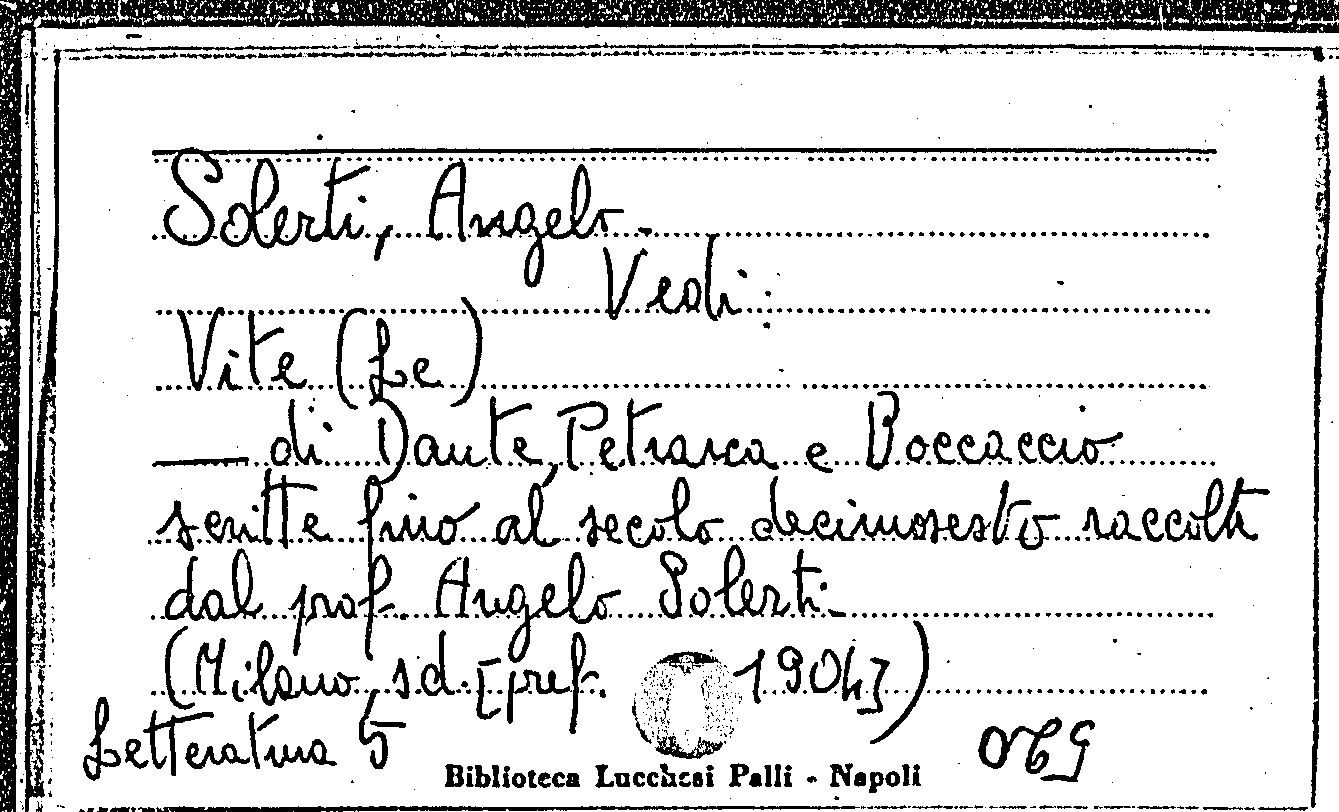 Solerti, Angelo.
Vedi:
Vite (Le)
— di Dante, Petrarca e Boccaccio
scritte fino al secolo decimosesto raccolte
dal prof. Angelo Solerti.
(Milano, s.d. [pref. 1904])
Letteratura 5
Biblioteca Lucchesi Palli - Napoli